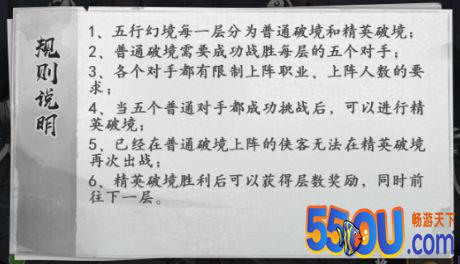 规则说明
1、五行幻境每一层分为普通破境和精英破境；
2、普通破境需要成功战胜每层的五个对手；
3、各个对手都有限制上阵职业、上阵人数的要
求；
4、当五个普通对手都成功挑战后，可以进行精
英破境；
5、已经在普通破境上阵的侠客无法在精英破境
再次出战；
6、精英破境胜利后可以获得层数奖励，同时前
往下一层。
畅游天下
55OU.com